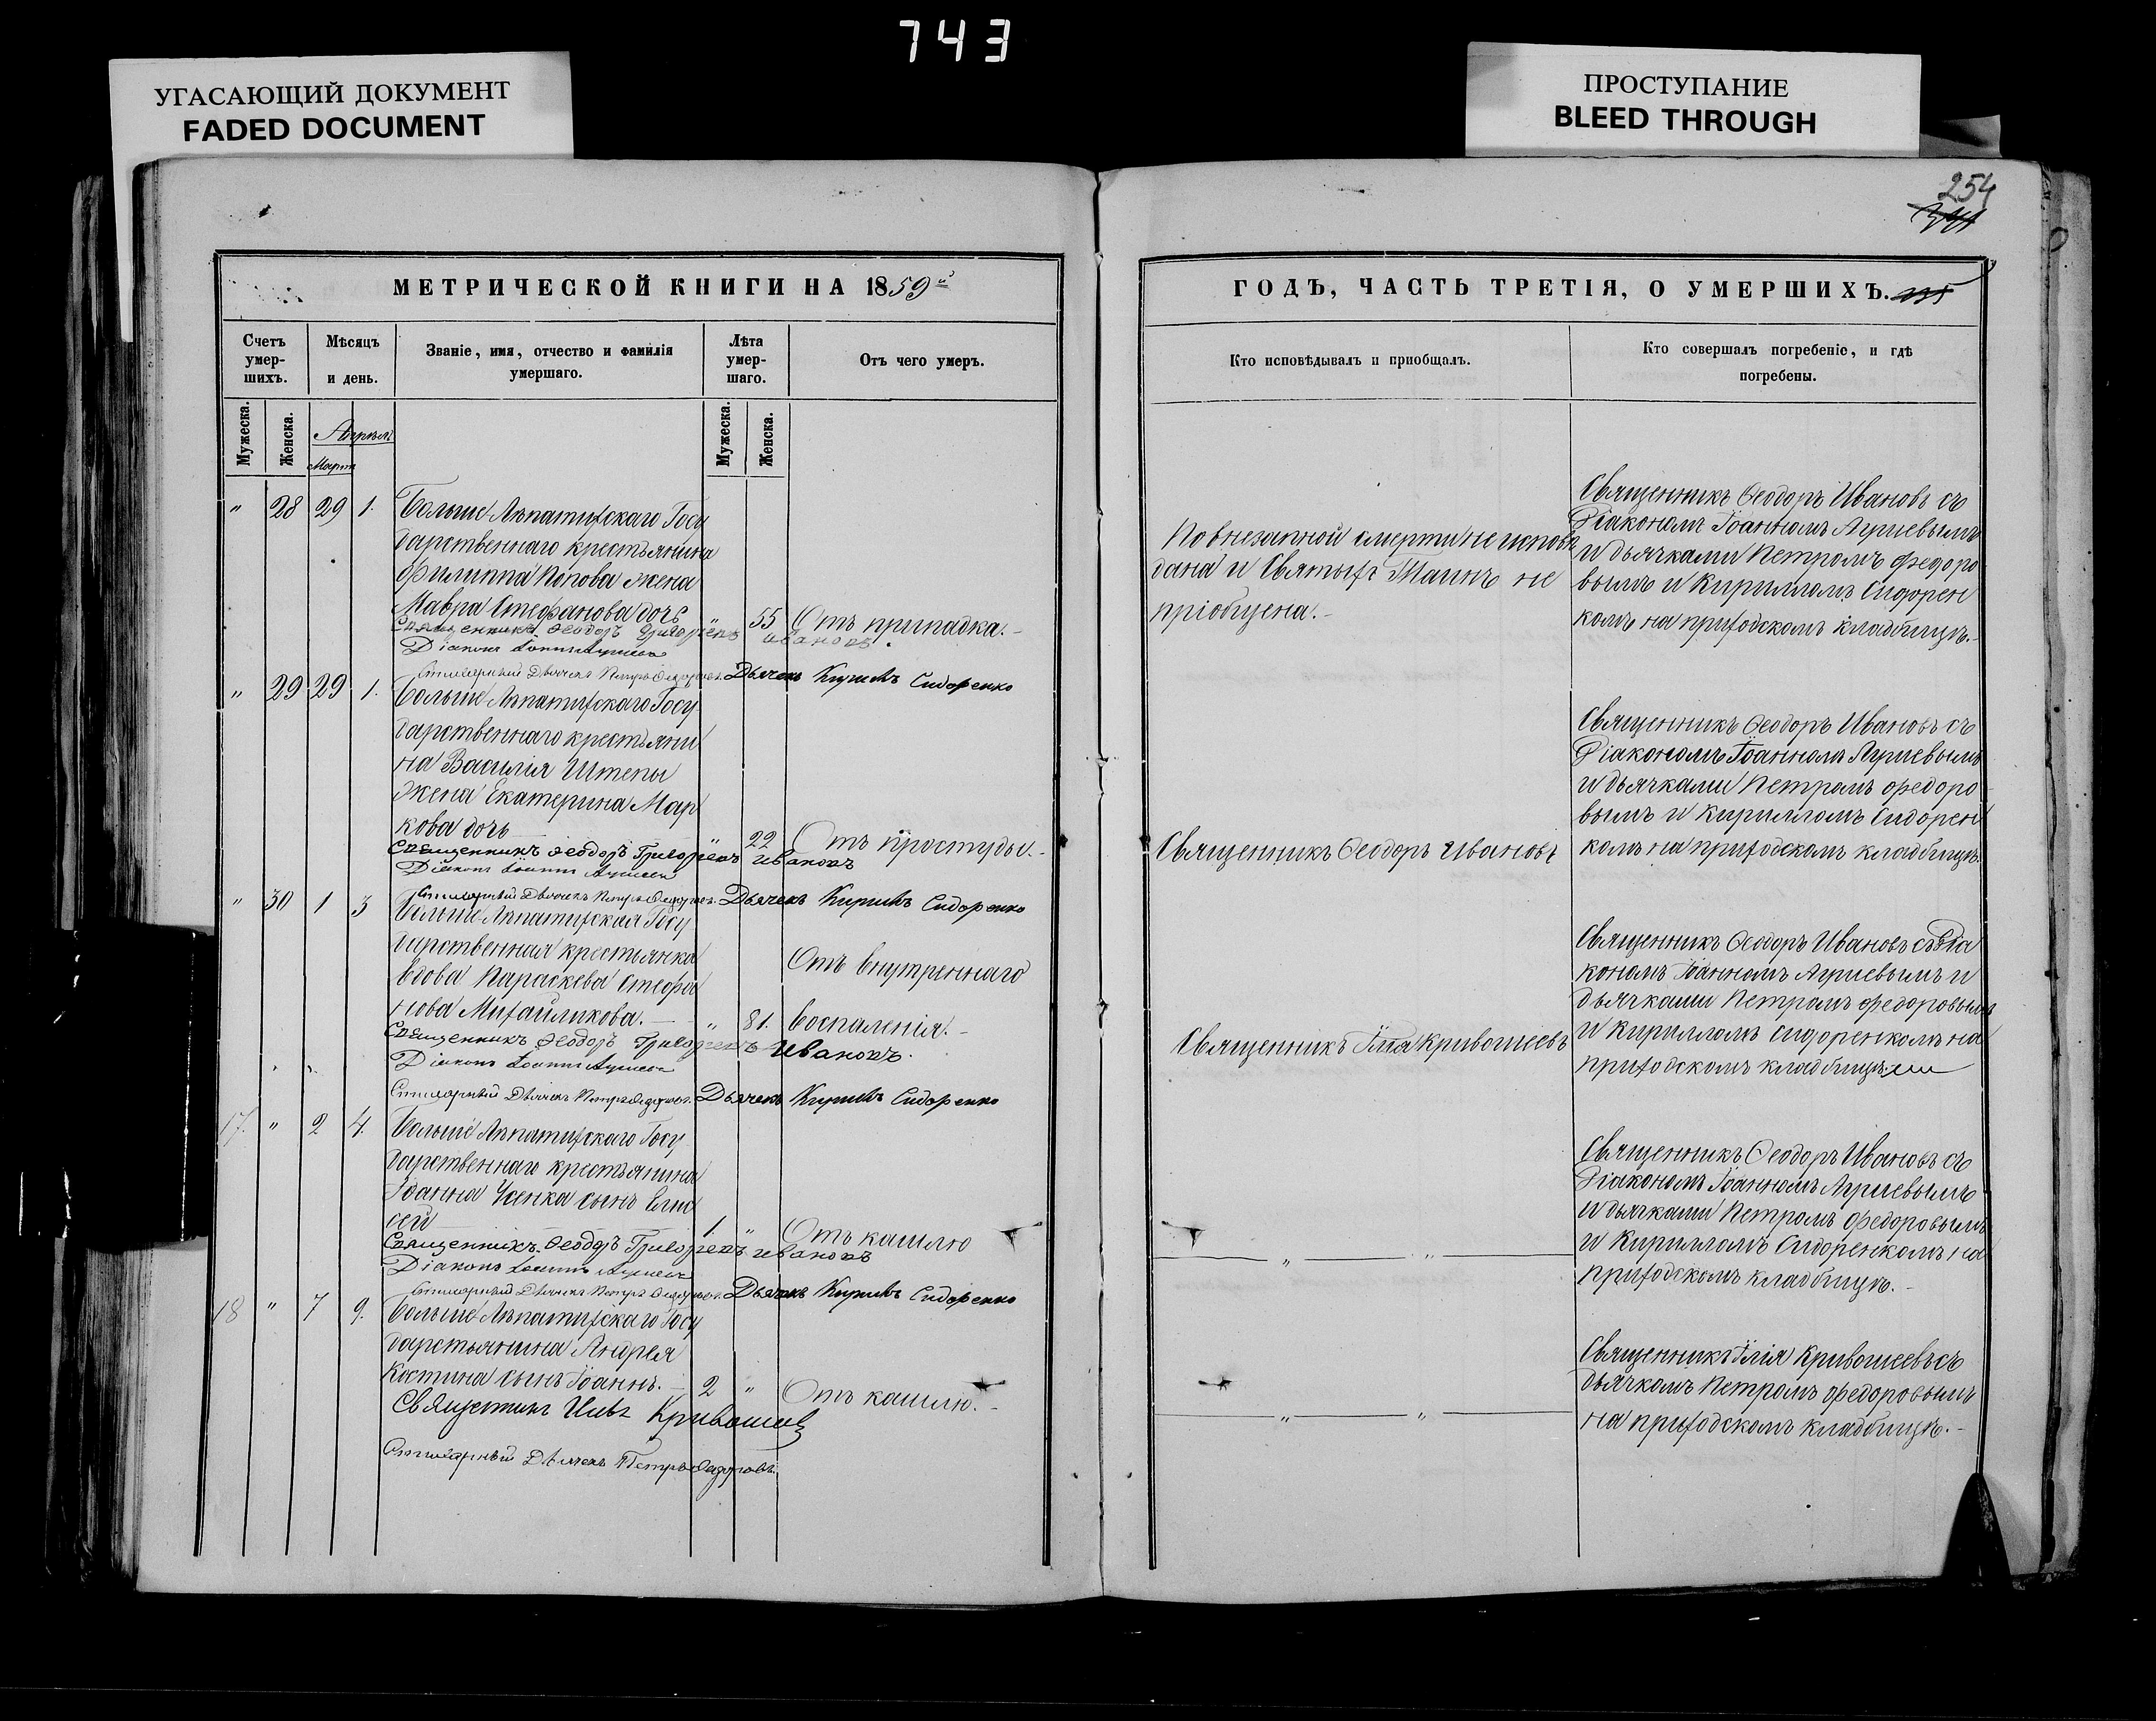 743
УГАСАЮЩИЙ ДОКУМЕНТ
FADED DOCUMENT
ПРОСТУПАНИЕ
BLEED THROUGH
254
МЕТРИЧЕСКОЙ КНИГИ НА 1859й
Счетъ умер-шихъ.
Мѣсяцъ и день.
Званіе, имя, отчество и фамилія умершаго.
Лѣта умер-шаго.
Отъ чего умеръ.
Мужеска.
Женска.
Апрѣля
Март
Мужеска.
Женска.
" 28 29 1. Больше-Лѣпатихскаго Госу
дарственнаго крестьянина
Филиппа Попова жена
Мавра Стефанова дочь " 55 Отъ припадка.-
Священникъ Ѳеодоръ Григорьевъ Ивановъ.
Діаконъ Іоаннъ
Стихарный Дьячекъ Петръ Ѳедоровъ. Дьячекъ Кирилъ Сидоренко
" 29 29 1. Больше-Лѣпатихскаго Госу
дарственнаго крестьяни
на Василія Штепы
жена Екатерина Мар
кова дочь " 22 Отъ простуды.-
Священникъ Ѳеодоръ Григорьевъ Ивановъ
Діаконъ Іоаннъ
Стихарный Дьячекъ Петръ Ѳедоровъ. Дьячекъ Кирилъ Сидоренко
" 30 1 3 Больше-Лѣпатихская Госу
дарственная крестьянка
вдова Параскева Стефа
нова Михайликова.- " 81. Отъ внутреннаго
воспаленія.-
Священникъ Ѳеодоръ Григорьевъ Ивановъ.
Діаконъ Іоаннъ
Стихарный Дьячекъ Петръ Ѳедоровъ. Дьячекъ Кирилъ Сидоренко
17. " 2 4. Больше-Лѣпатихскаго Госу
дарственнаго крестьянина
Іоанна Усенка сынъ Елис
сей 1 " Отъ кашлю
Священникъ Ѳеодоръ Григорьевъ Ивановъ
Діаконъ Іоаннъ
Стихарный Дьячекъ Петръ Ѳедоровъ. Дьячекъ Кирилъ Сидоренко
18 " 7 9. Больше-Лѣпатихскаго Госу
дарстьянина Андрея
Костина сынъ Іоаннъ.- 2 " Отъ кашлю.-
Священникъ Кривошеевъ
Стихарный Дьячекъ Петръ Ѳедоровъ.
ГОДЪ, ЧАСТЬ ТРЕТІЯ, О УМЕРШИХЪ.
Кто исповѣдывалъ и пріобщалъ.
Кто совершалъ погребеніе, и гдѣ погребены.
По внезапной смерти не исповѣ
дана и Святыхъ Таинъ не
пріобщена.-
Священникъ Ѳеодоръ Ивановъ съ
Діакономъ Іоанномъ
и дьячками Петромъ Федоро
вымъ и Кирилломъ Сидорен
комъ на приходскомъ кладбищѣ.-
Священникъ Ѳеодоръ Ивановъ
Священникъ Ѳеодоръ Ивановъ съ
Діакономъ Іоанномъ
и дьячками Петромъ Федоро
вымъ и Кирилломъ Сидорен
комъ на приходскомъ кладбищѣ.
Священникъ Илія Кривошеевъ
Священникъ Ѳеодоръ Ивановъ съ Діа
кономъ Іоанномъ и
дьячками Петромъ Федоровымъ
и Кирилломъ Сидоренкомъ на
приходскомъ кладбищѣ
" "
Священникъ Ѳеодоръ Ивановъ съ
Діакономъ Іоанномъ
и дьячками Петромъ Федоровымъ
и Кирилломъ Сидоренкомъ на
приходскомъ кладбищѣ.-
" "
Священникъ Илія Кривошеевъ съ
дьячкомъ Петромъ Федоровымъ
на приходскомъ кладбищѣ.-